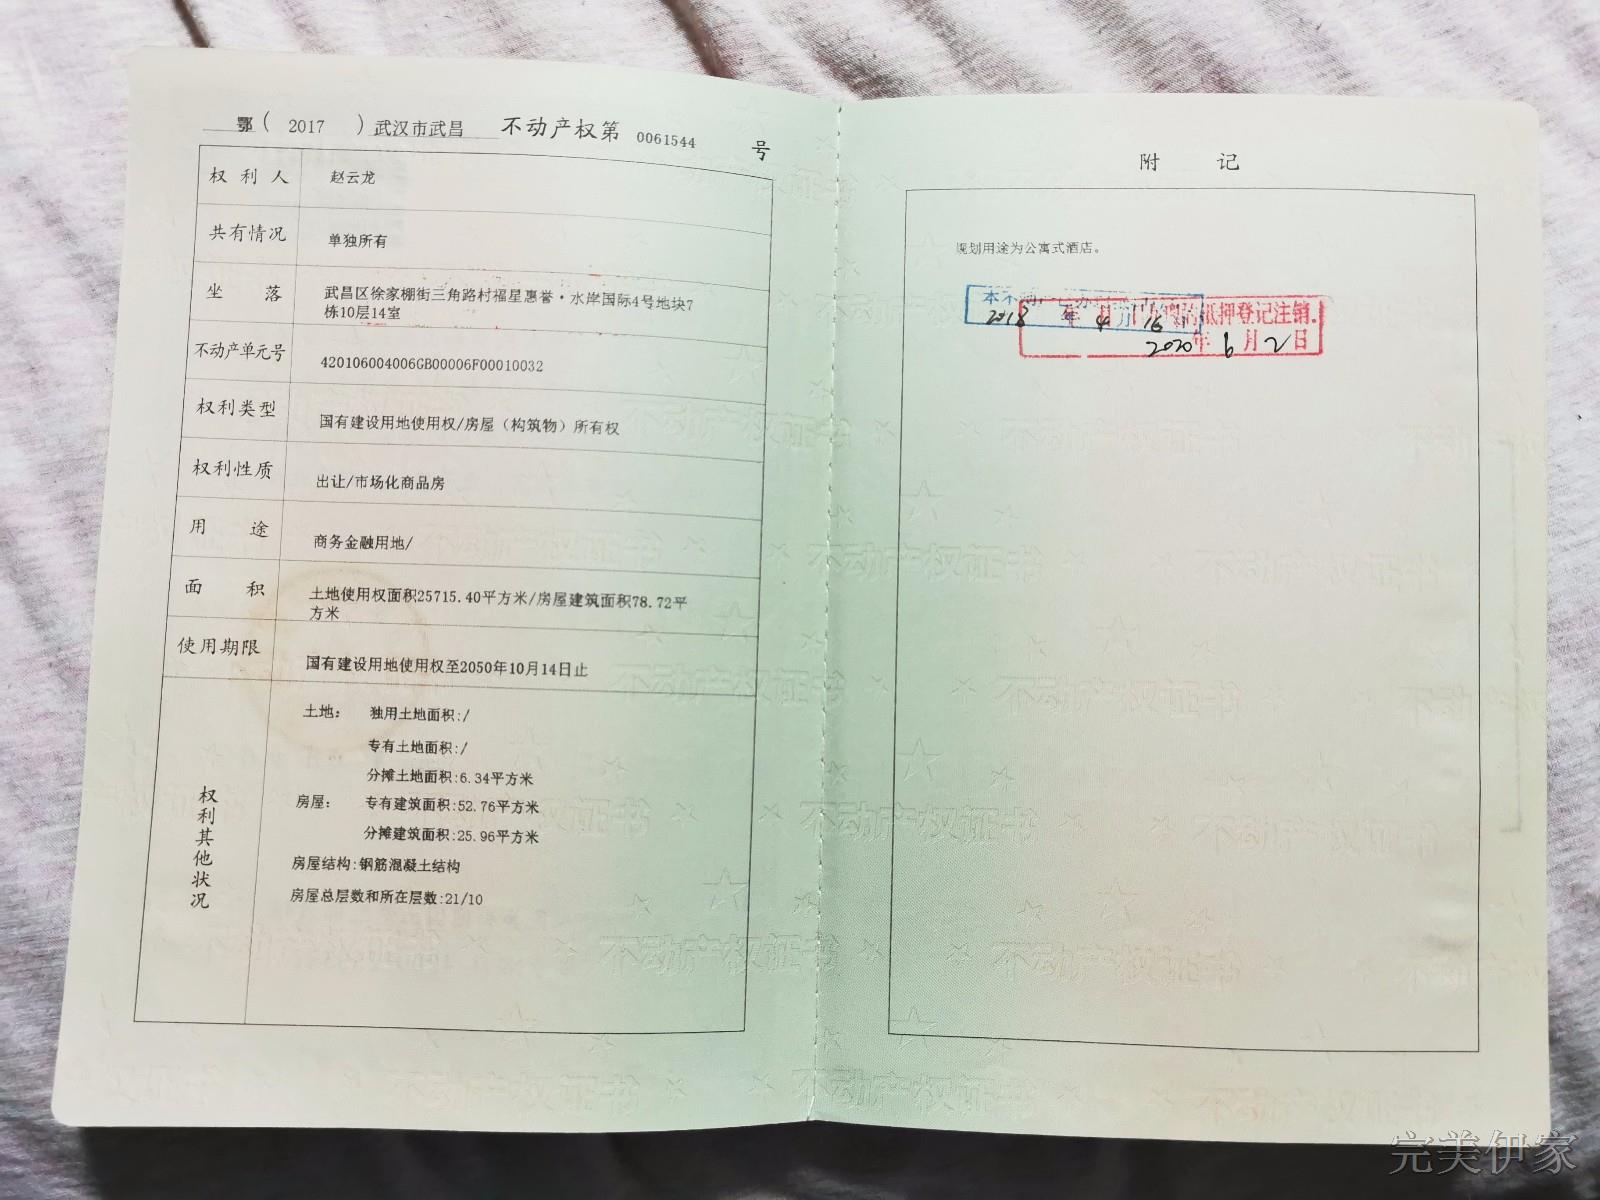 鄂( 2017 )武汉市武昌 不动产权第 0061544 号
权利人 赵云龙
共有情况 单独所有
坐落 武昌区徐家棚街三角路村福星惠誉·水岸国际4号地块7
栋10层14室
不动产单元号 420106004006GB00006F00010032
权利类型 国有建设用地使用权/房屋(构筑物)所有权
权利性质 出让/市场化商品房
用途 商务金融用地/
面积 土地使用权面积25715.40平方米/房屋建筑面积78.72平
方米
使用期限 国有建设用地使用权至2050年10月14日止
权利其他状况
土地: 独用土地面积:/
专有土地面积:/
分摊土地面积:6.34平方米
房屋: 专有建筑面积:52.76平方米
分摊建筑面积:25.96平方米
房屋结构:钢筋混凝土结构
房屋总层数和所在层数:21/10
附记
规划用途为公寓式酒店。
本不动产已办
2018年4月16日
抵押登记注销.
2020年6月2日
不动产权证书
完美伊家